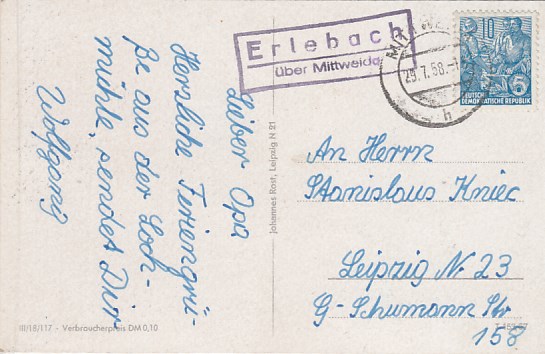 Erlebach
über Mittweida
29.7.58
h
10
6
DEUTSCHE
DEMOKRATISCHE REPUBLIK
Lieber Opa
Herzliche Feriengrü-
ße aus der Loch-
mühle, sendet Dir
Wolfgang
Johannes Rost, Leipzig N 21
An Herrn
Stanislaus Kniec
Leipzig N. 23
G-Schumann Str
158
III/18/117 - Verbraucherpreis DM 0,10